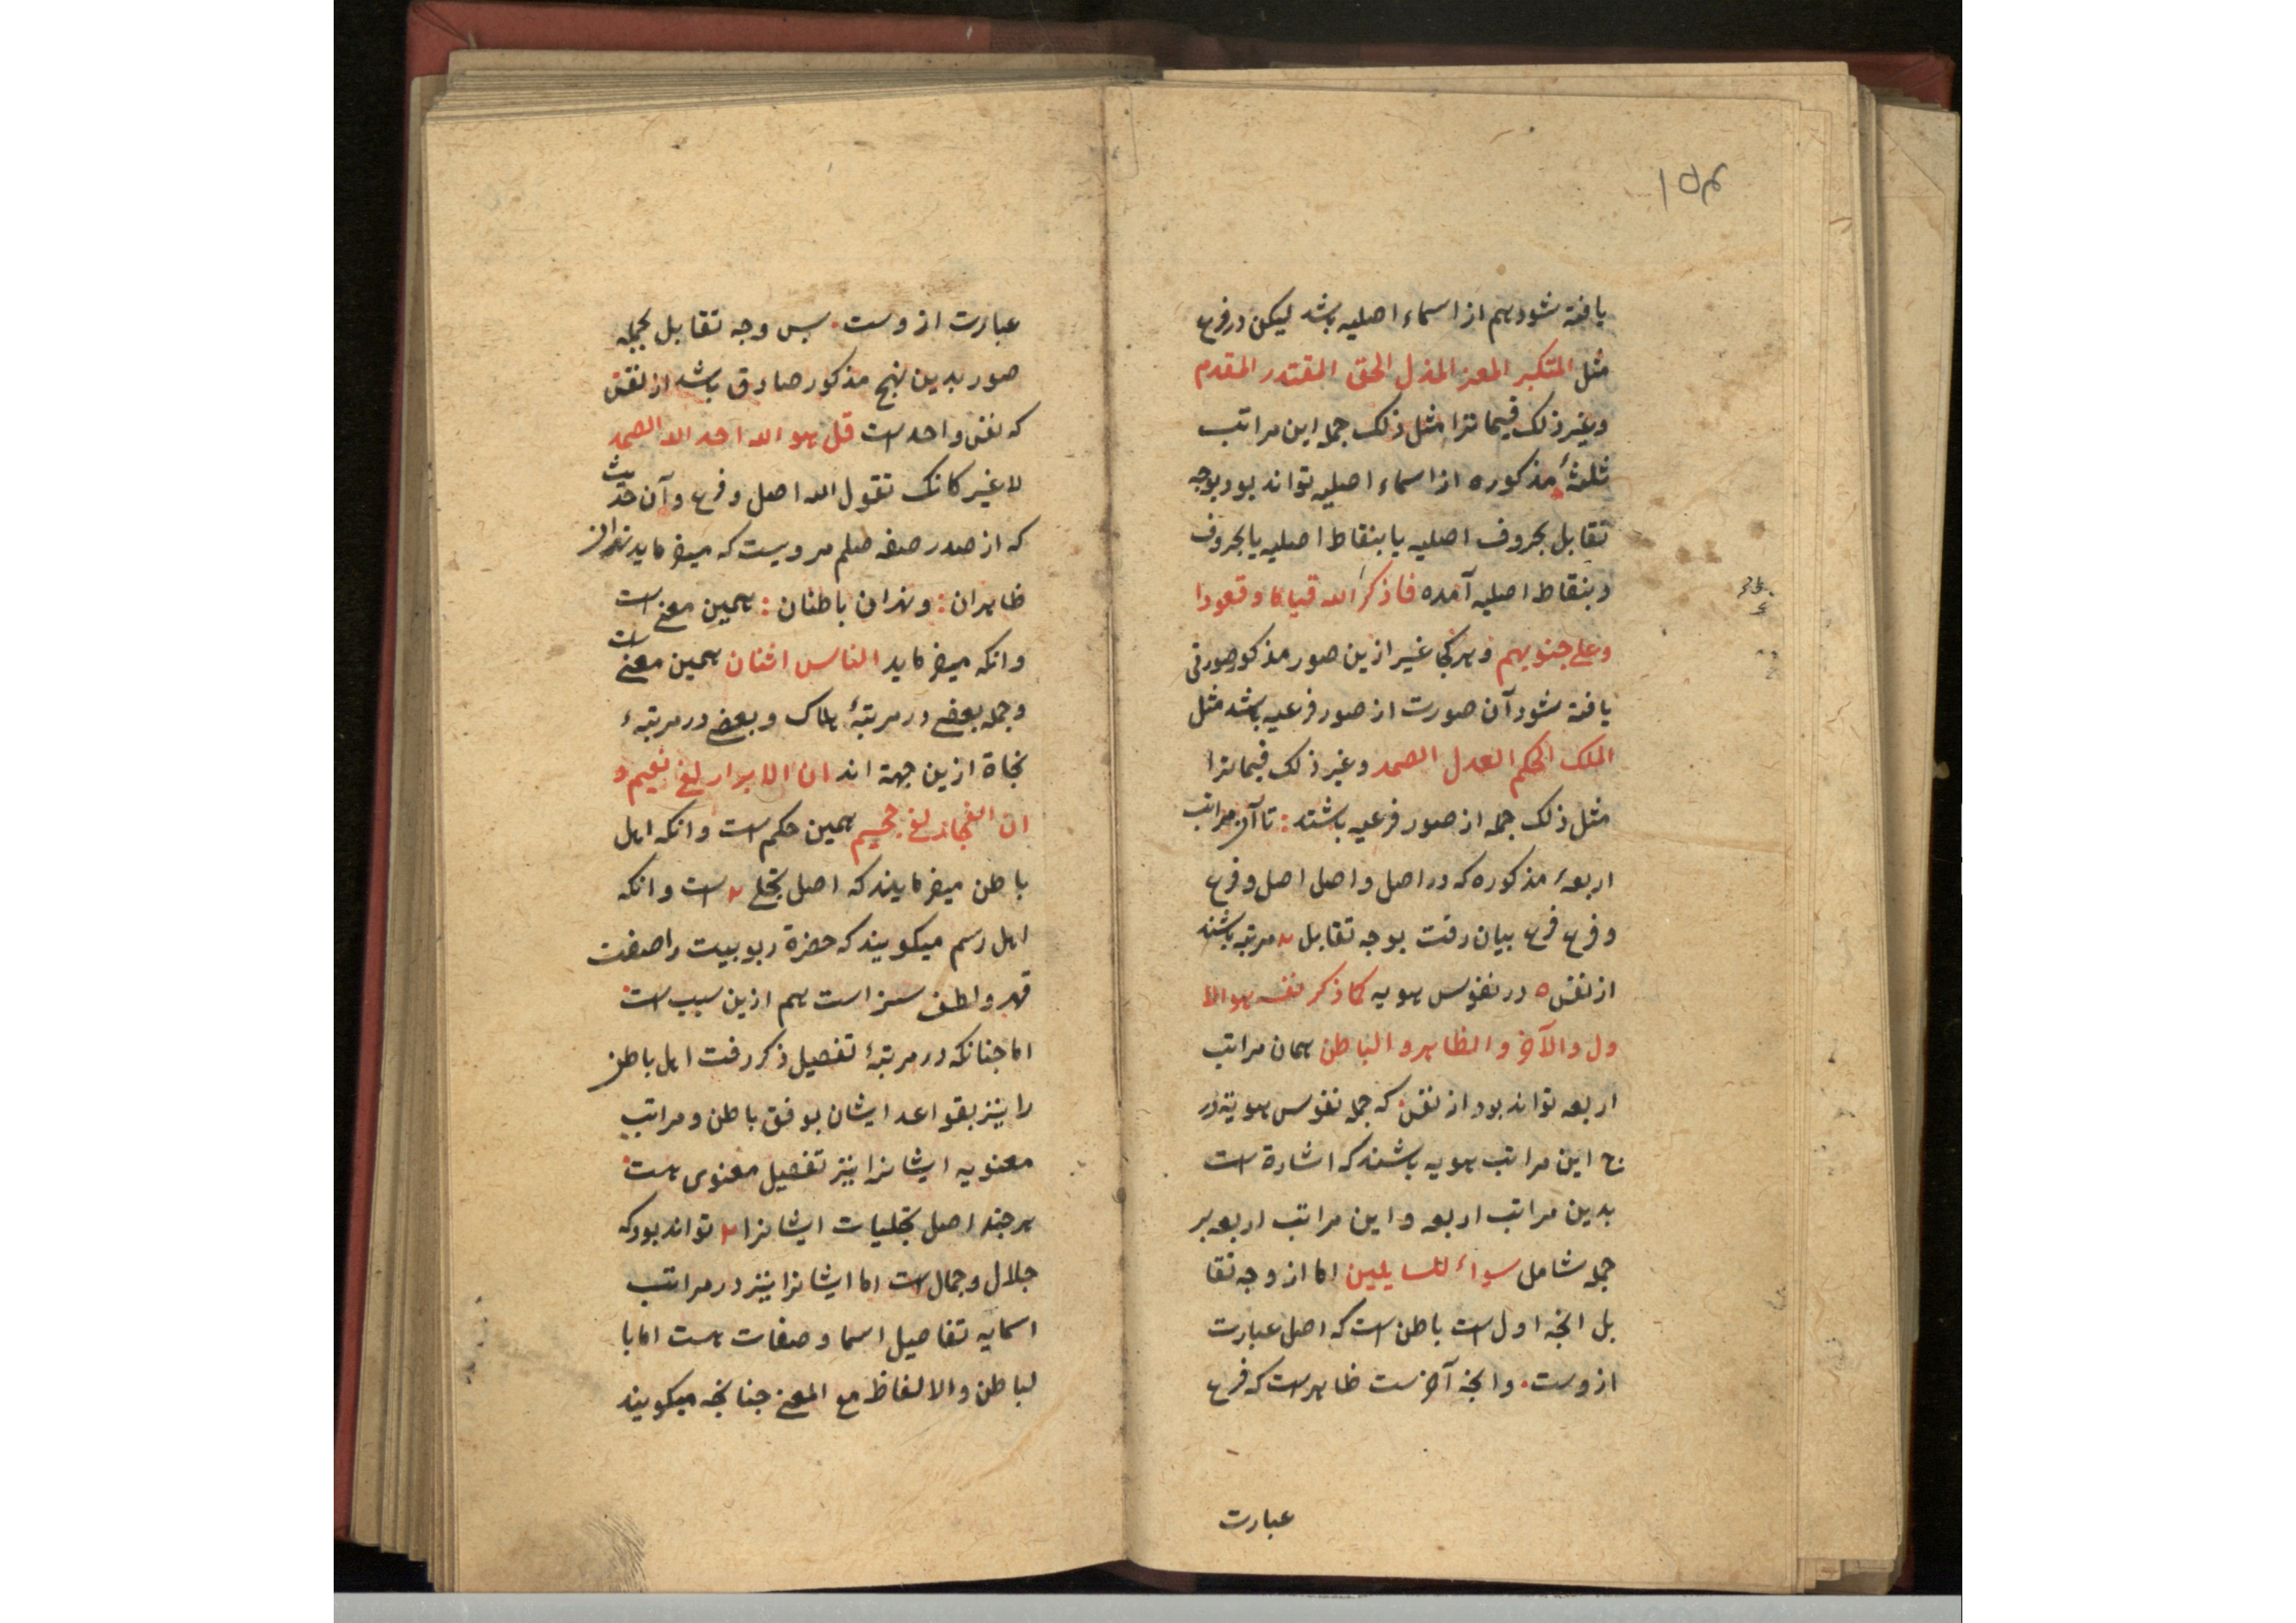 ۱۵۴
یافته شود هم از اسماء اصلیه باشد لیکن در فرع
مثل المتکبر المعز المذل الحق المقتدر المقدم
وغیر ذلک فیما ترا مثل ذلک جمله این مراتب
ثلثهٔ مذکوره از اسماء اصلیه تواند بود بوجه
تقابل بحروف اصلیه یا بنقاط اصلیه یا بحروف
وبنقاط اصلیه آمده فاذکر الله قیاما وقعودا
وعلی جنوبهم وهر کجا غیر ازین صور مذکور صورتی
یافته شود آن صورت از صور فرعیه باشد مثل
الملک الحکم العدل الصمد وغیر ذلک فیما ترا
مثل ذلک جمله از صور فرعیه باشند : تا آن مراتب
اربعهٔ مذکوره که در اصل واصل اصل وفرع
وفرع فرع بیان رفت بوجه تقابل ۴ مرتبه باشند
از نقش ۵ در نفوس هویه کما ذکر نفسه هو الا
ول والآخر والظاهر والباطن همان مراتب
اربعه تواند بود از نقش که جمله نفوس هویة در
ح این مراتب هویه باشند که اشارة است
بدین مراتب اربعه واین مراتب اربعه بر
جمله شامل سواء للسایلین اما از وجه تقا
بل انچه اول است باطن است که اصل عبارت
ازوست . وانچه آخر ست ظاهر است که فرع
عبارت
عبارت ازوست . پس وجه تقابل بجمله
صور بدین نهج مذکور صادق باشد از نقش
که نفس واحد است قل هو الله احد الله الصمد
لا غیر کانک تقول الله اصل وفرع وآن حدیث
که از صدر صفه صلعم مرویست که میفرماید نهران
ظاهران : ونهران باطنان : همین معنی است
وانکه میفرماید الناس اثنان همین معنی است
وجمله بعضی در مرتبهٔ هلاک وبعضی در مرتبهٔ
نجاة ازین جهة اند ان الابرار لفی نعیم و
ان الفجار لفی جحیم همین حکم است وانکه اهل
باطن میفرمایند که اصل تجلی ۲ است وانکه
اهل رسم میکویند که حضرة ربوبیت را صفت
قهر ولطف سزاست هم ازین سبب است
اما جنانکه در مرتبهٔ تفصیل ذکر رفت اهل باطن
را نیز بقواعد ایشان بوفق باطن ومراتب
معنویه ایشانرا نیز تفصیل معنوی هست
هر جند اصل تجلیات ایشانرا ۲ تواند بود که
جلال وجمال است اما ایشانرا نیز در مراتب
اسمایه تفاصیل اسما وصفات هست اما با
لباطن والالفاظ مع المعنی جنانچه میکویند